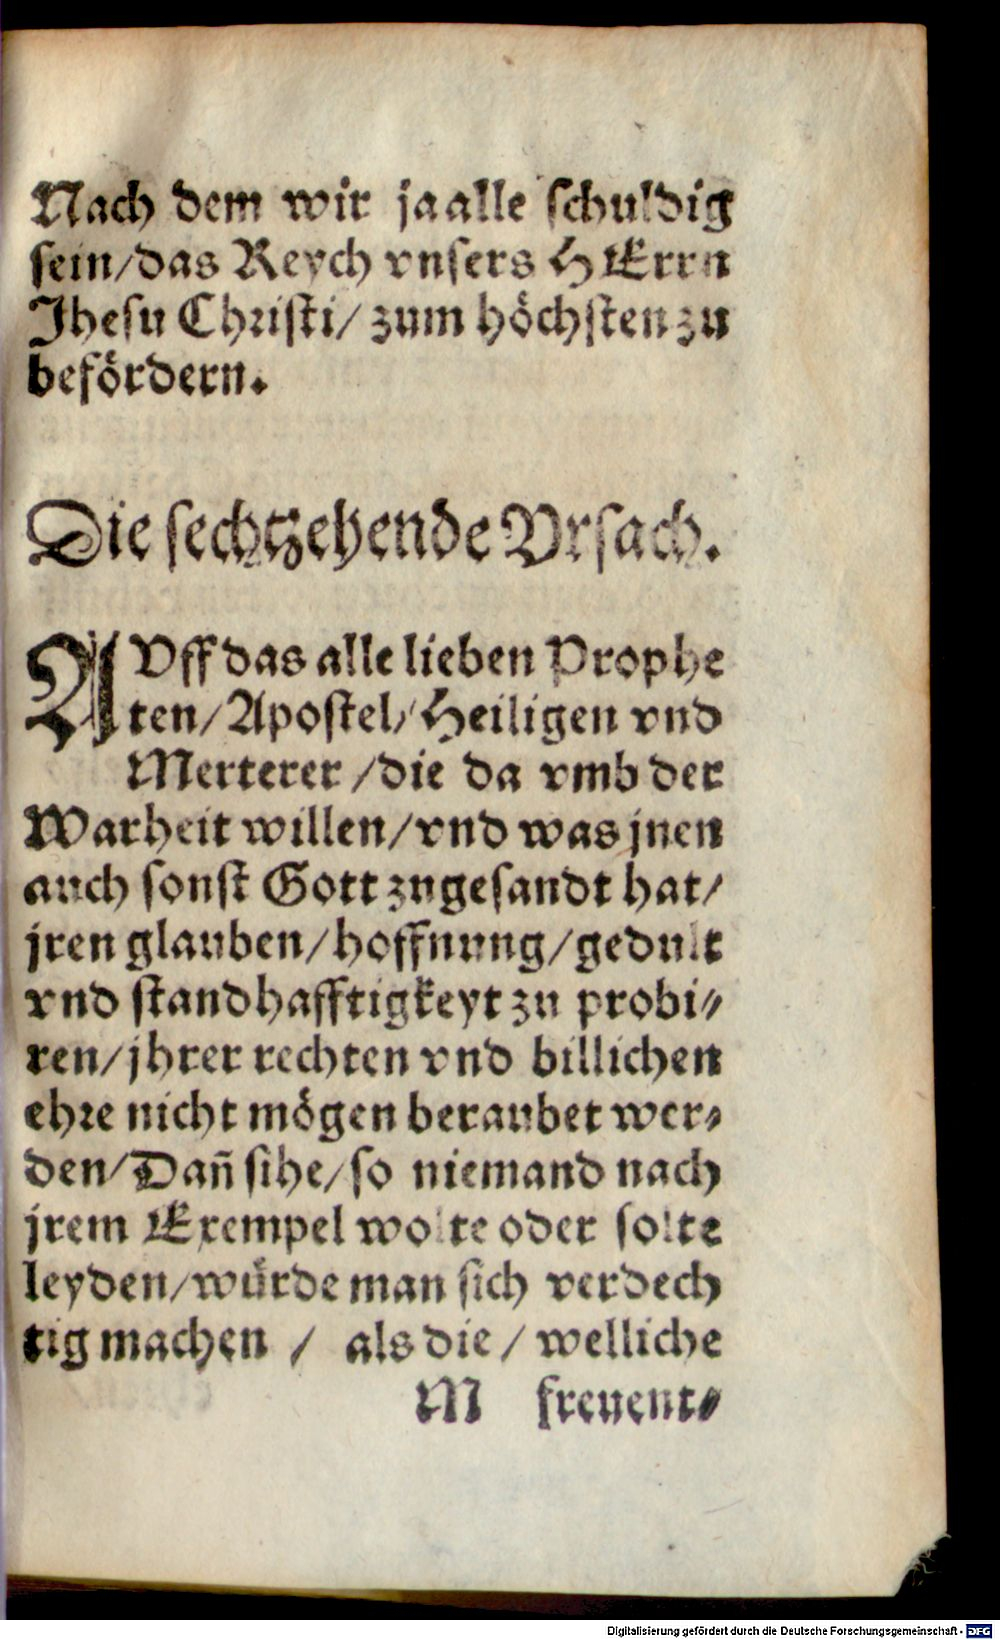 Nach dem wir ja alle schuldig
sein/das Reych vnsers HErrn
Jhesu Christi/ zum höchsten zu
befördern.
Die sechtzehende Vrsach.
AVff das alle lieben Prophe
ten/Apostel/Heiligen vnd
Merterer/die da vmb der
Warheit willen/vnd was jnen
auch sonst Gott zugesandt hat/
jren glauben/hoffnung/gedult
vnd standhafftigkeyt zu probi⸗
ren/jhrer rechten vnd billichen
ehre nicht mögen beraubet wer⸗
den/Dañ sihe/so niemand nach
jrem Exempel wolte oder solte
leyden/würde man sich verdech
tig machen / als die/ welliche
M freuent⸗
Digitalisierung gefördert durch die Deutsche Forschungsgemeinschaft - DFG